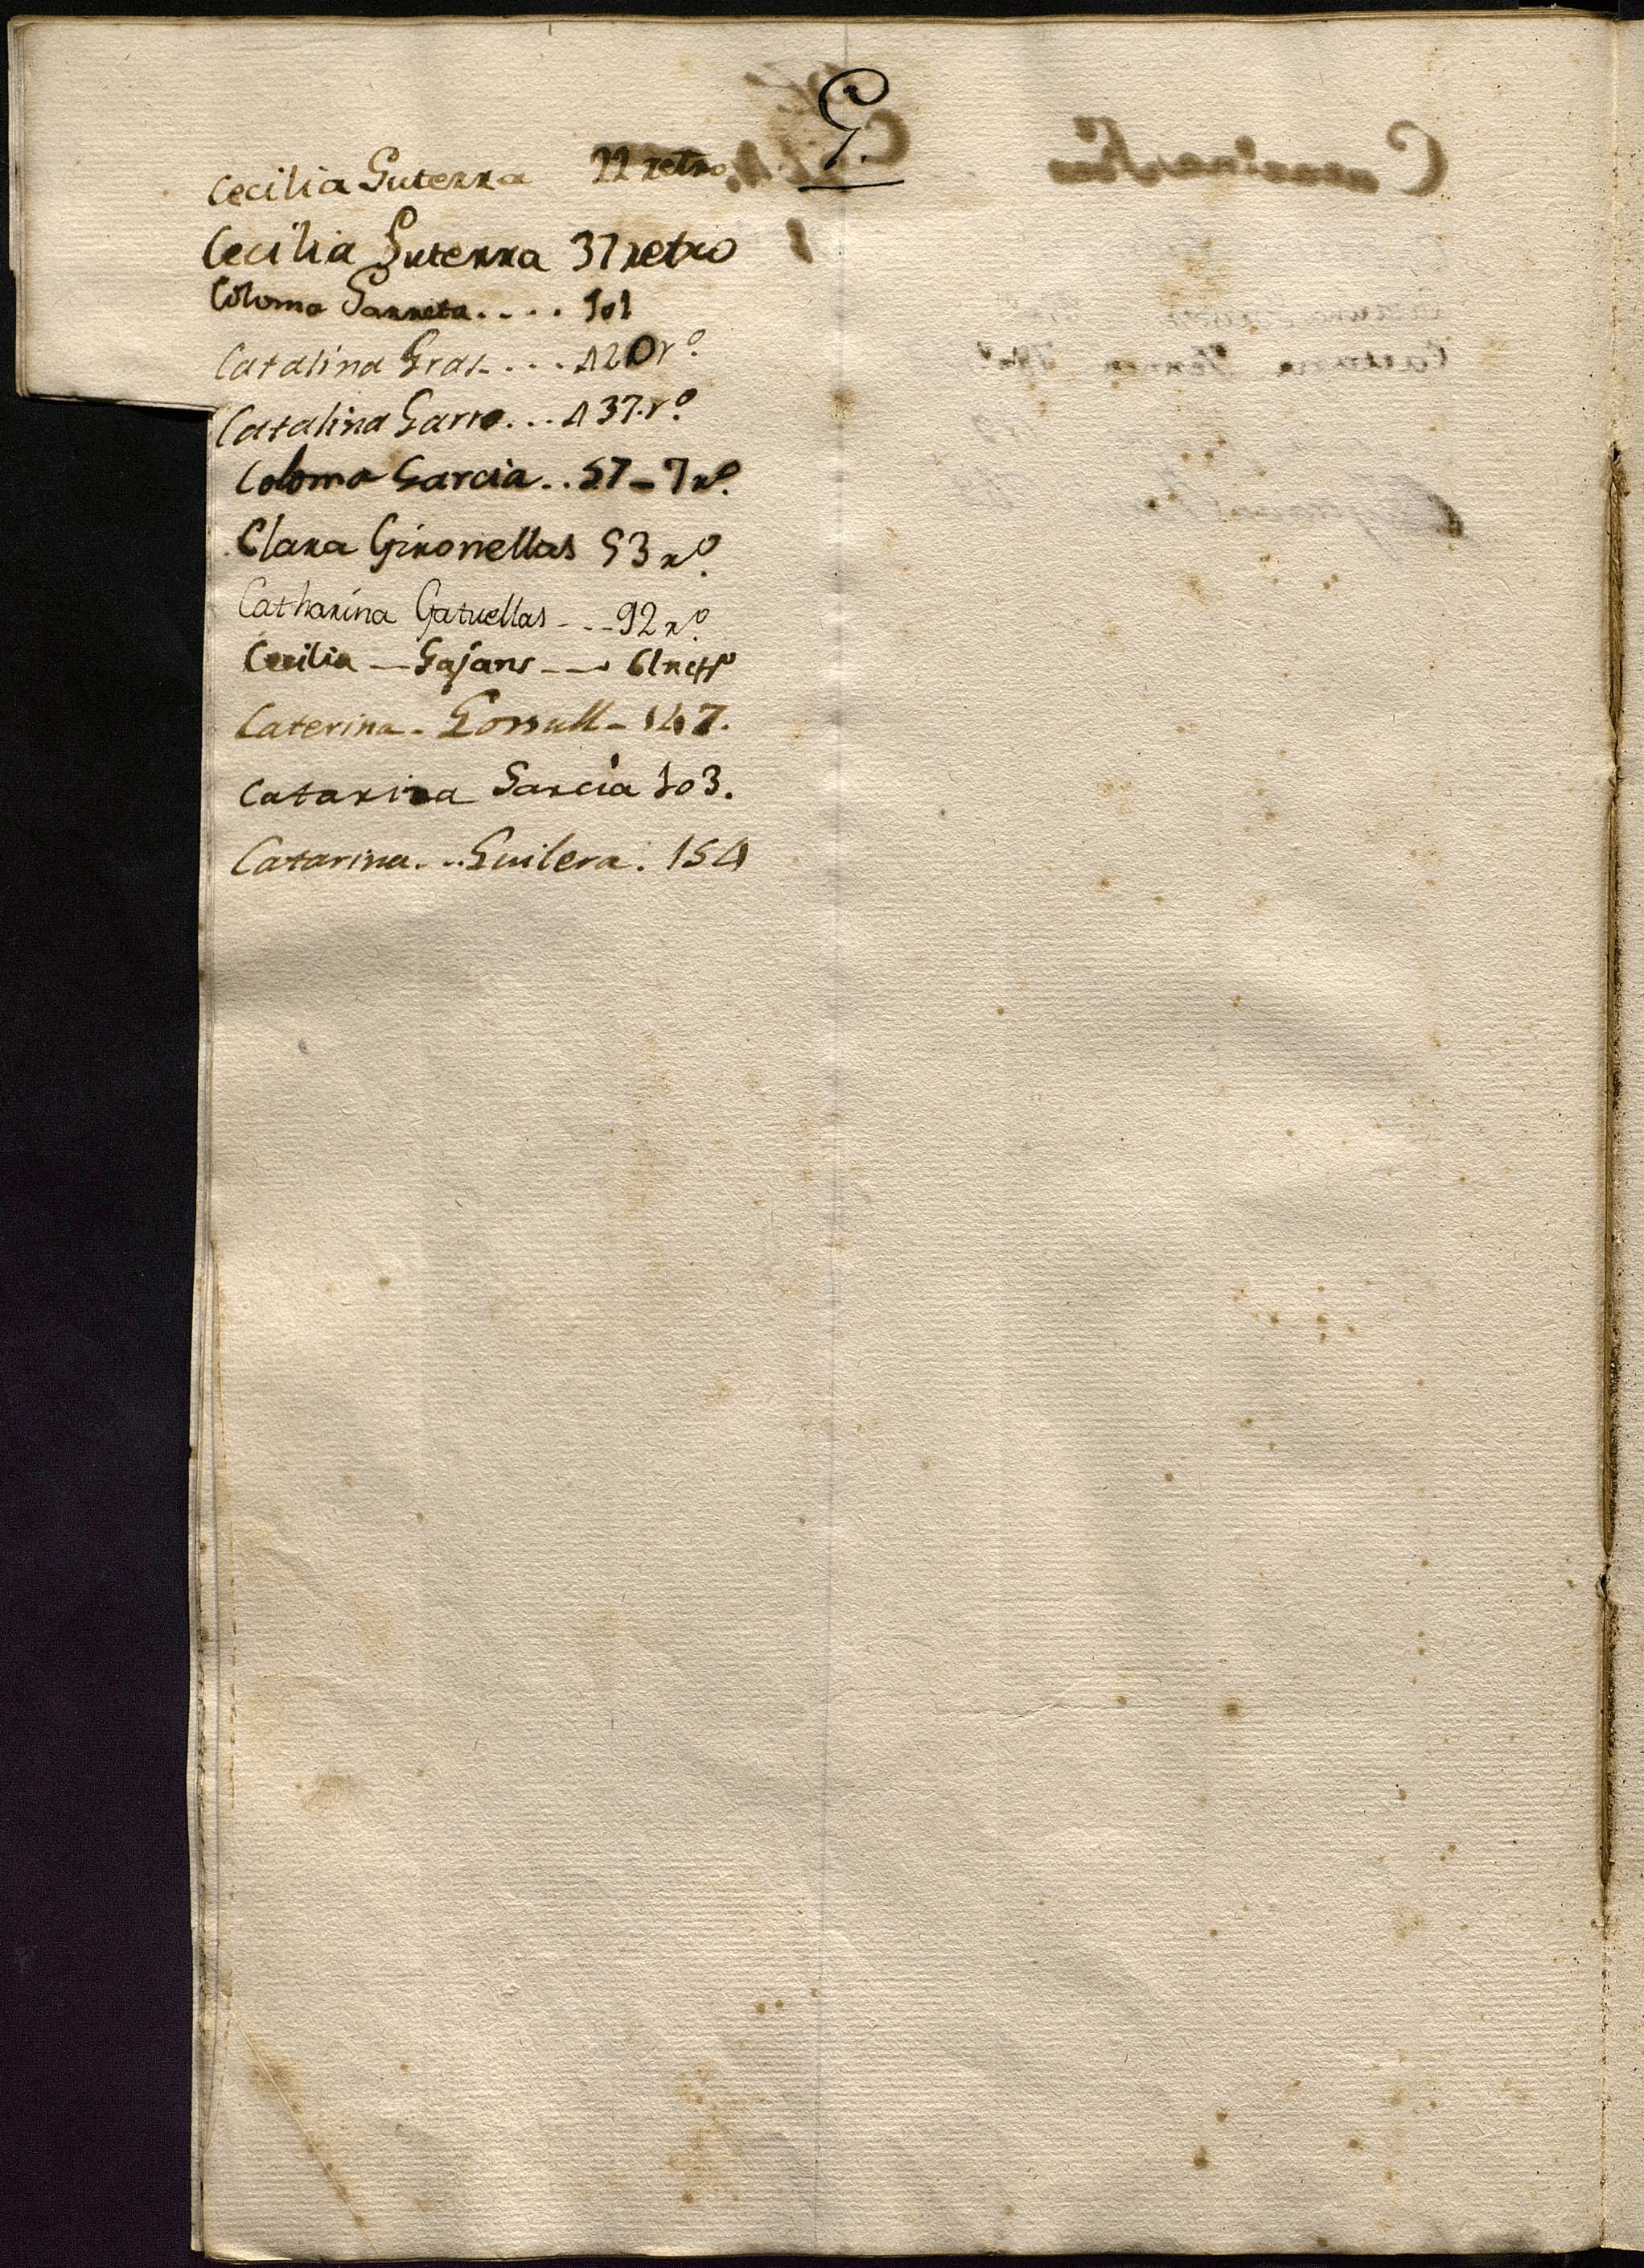 G.
Cecilia Guterra 22 retro.
Cecilia Guterra 37 retro
Coloma Garreta.... 101
Catalina Gras.... 120 rº.
Catalina Garro... 137. rº.
Coloma Garcia.. 57 - 7 rº.
Clara Gironellas 53 rº.
Catharina Gatuellas - - - 92 rº.
Cecilia — Gajans - — 61
Caterina - - 147.
Catarina Garcia 103.
Catarina. - . Guilera. 154